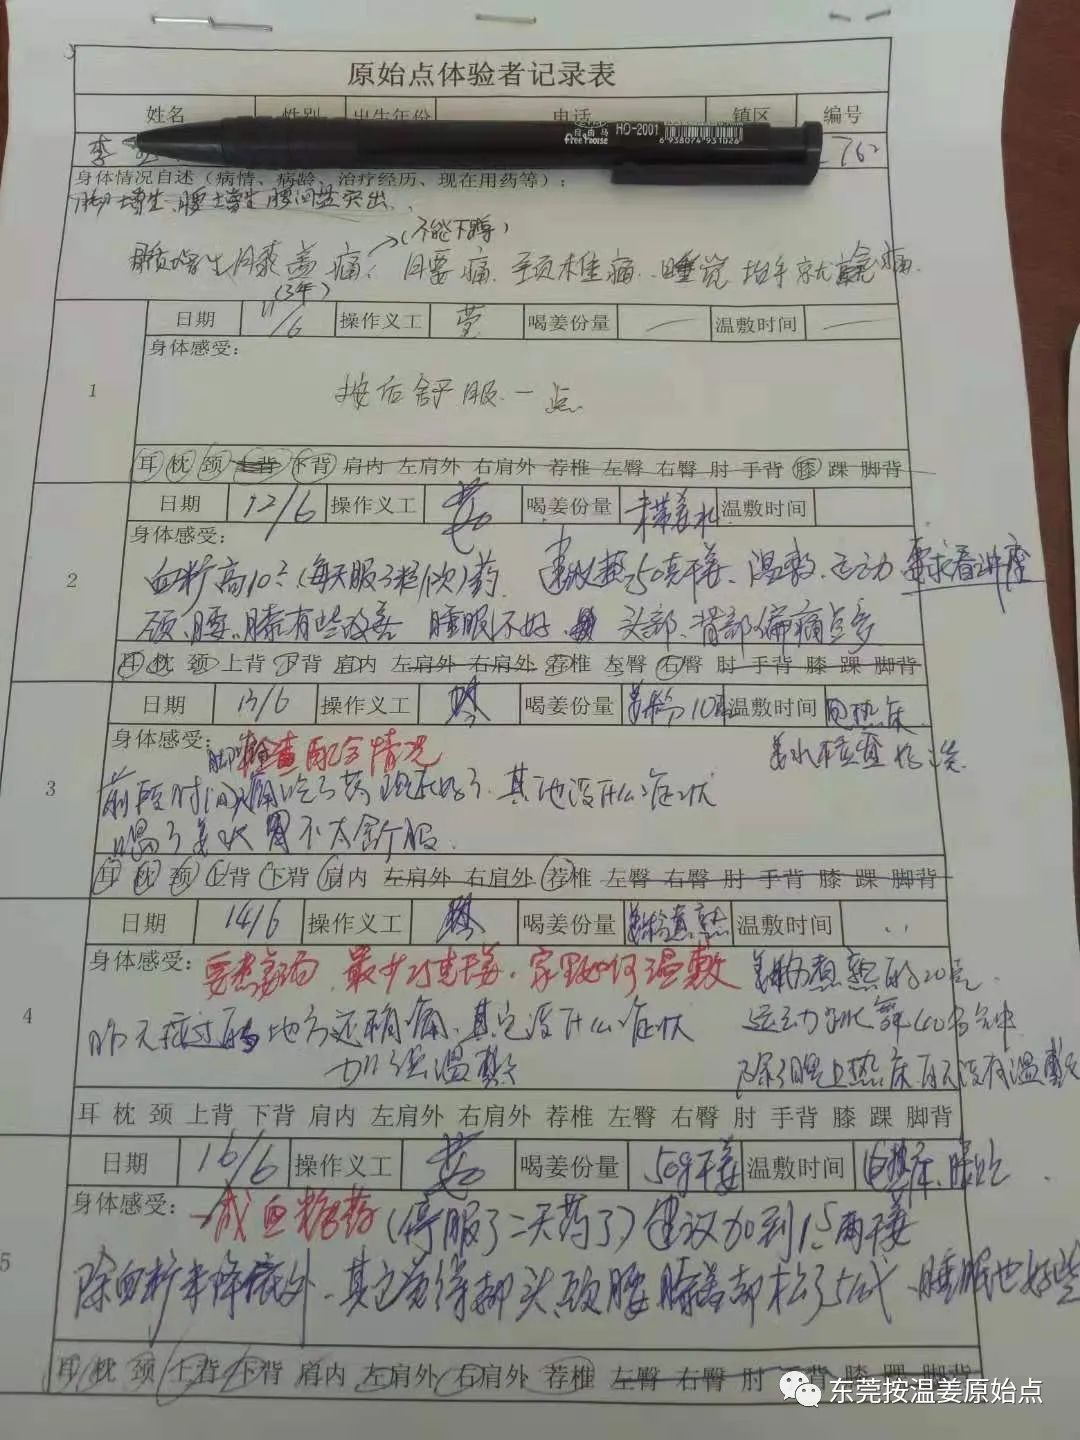 原始点体验者记录表
姓名 性别 出生年份 电话 镇区 编号
李 762
自由马 Freehouse HO-2001 6 938074 931026
身体情况自述（病情、病龄、治疗经历、现在用药等）：
增生、腰增生 腰间盘突出.
(不能下蹲)
骨质增生 膝盖痛、腰痛 颈椎痛. 睡觉 抬手就痛
(3年)
日期 11/6 操作义工 喝姜份量 — 温敷时间 —
身体感受:
1
按后舒服一点
耳 枕 颈 上背 下背 肩内 左肩外 右肩外 荐椎 左臀 右臀 肘 手背 膝 踝 脚背
日期 12/6 操作义工 喝姜份量 未带姜水 温敷时间
身体感受:
2
血糖高10 (每天服3粒/次)药 建议 50克干姜、温敷、运动 要求看讲座
颈、腰、膝有些改善 睡眠不好 头部、背部偏痛点多
耳 枕 颈 上背 下背 肩内 左肩外 右肩外 荐椎 左臀 右臀 肘 手背 膝 踝 脚背
日期 13/6 操作义工 喝姜份量 姜粉10克 温敷时间 电热床
身体感受: 检查配合情况 姜水检查
3
前段时间 痛吃了药现在好了. 其他没什么症状
喝了姜水胃不太舒服.
耳 枕 颈 上背 下背 肩内 左肩外 右肩外 荐椎 左臀 右臀 肘 手背 膝 踝 脚背
日期 14/6 操作义工 喝姜份量 温敷时间
身体感受: 要煮姜汤 最少25克干姜. 家里如何温敷 姜粉煮熟的20克
4
昨天按过的地方还稍痛、其它没什么症状 运动 舞40多分钟
加强温敷 除了晚上热床 白天没有温敷
耳 枕 颈 上背 下背 肩内 左肩外 右肩外 荐椎 左臀 右臀 肘 手背 膝 踝 脚背
日期 16/6 操作义工 喝姜份量 50g干姜 温敷时间
身体感受: 减血糖药 (停服了二天药了) 建议加到1.5两干姜
5
除血糖 外. 其它觉得 头 颈 腰 膝盖都松了5成、睡眠也好些
耳 枕 颈 上背 下背 肩内 左肩外 右肩外 荐椎 左臀 右臀 肘 手背 膝 踝 脚背
东莞按温姜原始点